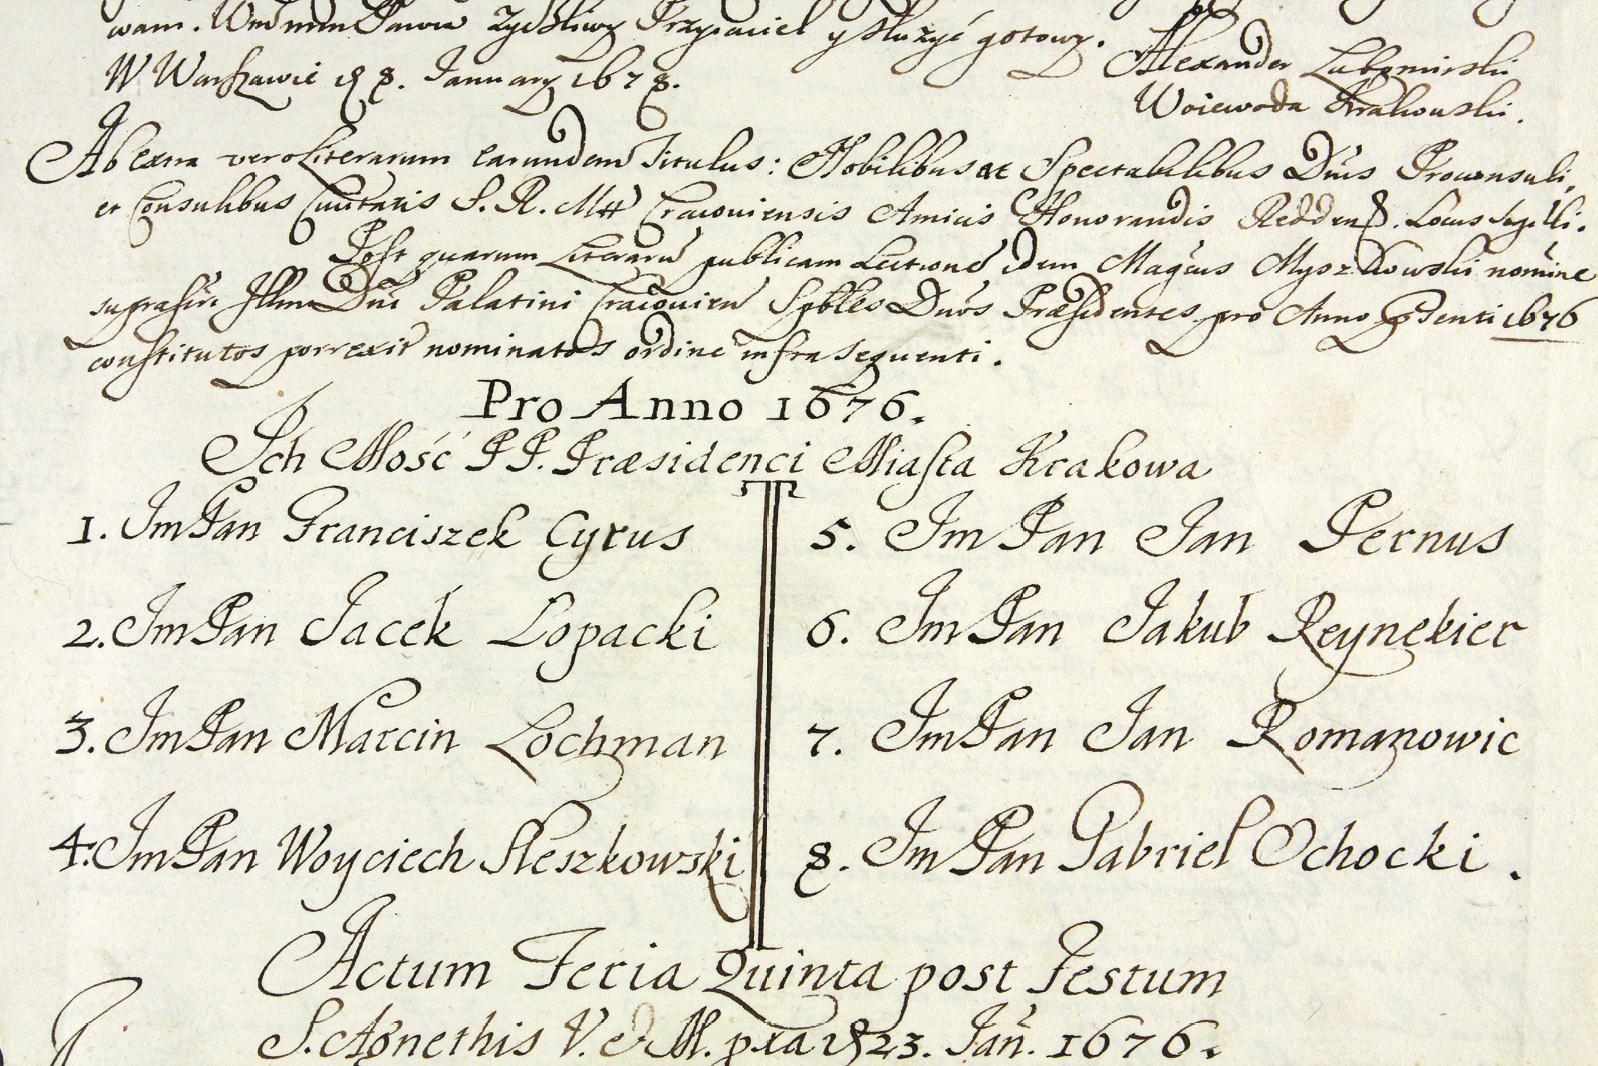 wam. Wm mm Panu Zyczliwy Przyiaciel y służyć gotowy.
W Warszawie 18. January 1678.
Alexander Lubomirski
Woiewoda Krakowski.
Ab extra vero Literarum earundem Titulus: Nobilibus et Spectabilibus Dnis Proconsuli,
et Consulibus Civitatis S. R. Mtt Cracoviensis Amicis Honorandis Reddend. Locus Sigilli.
Post quarum Literaru publicam Lectione idem Magcus Myszkowski nomine
suprascr. Illmi Dni Palatini Cracovien Spbles Dnos Præsidentes pro Anno pdenti 1676
constitutos porrexit nominatos ordine infra sequenti.
Pro Anno 1676.
Ich Mość PP. Præsidenci Miasta Krakowa
1. Im Pan Franciszek Cyrus
2. Im Pan Jacek Lopacki
3. Im Pan Marcin Lochman
4. Im Pan Woyciech Sleszkowski
5. Im Pan Jan Pernus
6. Im Pan Jakub Reynekier
7. Im Pan Jan Romanowic
8. Im Pan Gabriel Ochocki.
Actum Feria Quinta post Festum
S. Agnethis V. et M. 23. Jan. 1676.